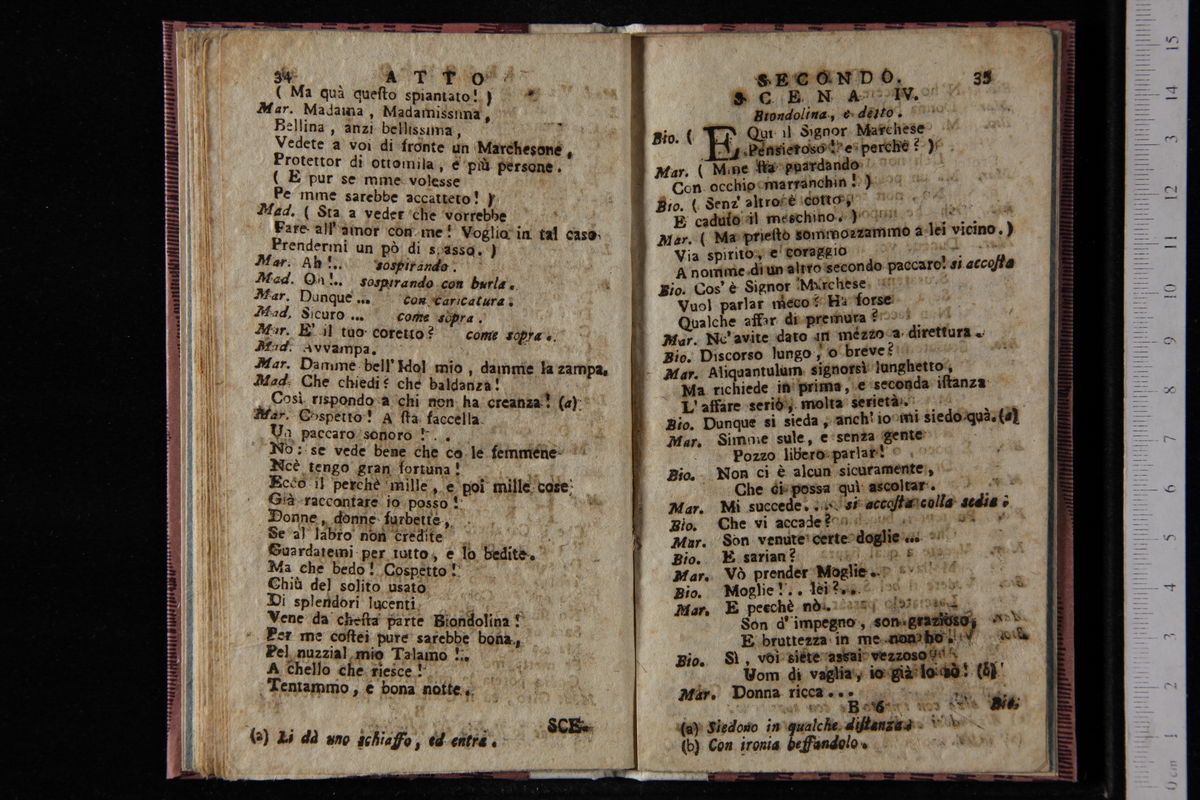 34 ATTO
( Ma quà queſto spiantato! )
Mar. Madama, Madamissina,
Bellina, anzi bellissima,
Vedete a voi di fronte un Marchesone,
Protettor di ottomila, e più persone.
( E pur se mme volesse
Pe mme sarebbe accatteto! )
Mad. ( Sta a veder che vorrebbe
Fare all'amor con me! Voglio in tal caso
Prendermi un pò di spasso. )
Mar. Ah!.. sospirando.
Mad. Oh!.. sospirando con burla.
Mar. Dunque... con caricatura.
Mad. Sicuro... come sopra.
Mar. E' il tuo coretto? come sopra.
Mad. Avvampa.
Mar. Damme bell'Idol mio, damme la zampa.
Mad. Che chiedi? che baldanza!
Così rispondo a chi non ha creanza! (a)
Mar. Cospetto! A ſta faccella
Un paccaro sonoro!...
No: se vede bene che co le femmene
Ncè tengo gran fortuna!
Ecco il perchè mille, e poi mille cose,
Già raccontare io posso!
Donne, donne furbette,
Se al labro non credite
Guardatemi per tutto, e lo bedite.
Ma che bedo! Cospetto!
Chiù del solito usato
Di splendori lucenti
Vene da cheſta parte Biondolina!
Per me coſtei pure sarebbe bona,
Pel nuzzial mio Talamo!..
A chello che riesce!
Tentammo, e bona notte.
SCE-
(a) Li dà uno schiaffo, ed entra.
SECONDO. 35
SCENA IV.
Biondolina, e detto.
Bio. ( EQui il Signor Marchese
Pensieroso! e perchè? )
Mar. ( Mme ſta guardando
Con occhio marranchin! )
Bio. ( Senz'altro è cotto,
E caduto il meschino. )
Mar. ( Ma prieſto sommozzammo a lei vicino. )
Via spirito, e coraggio
A nomme di un altro secondo paccaro! si accoſta
Bio. Cos'è Signor Marchese
Vuol parlar meco? Ha forse
Qualche affar di premura?
Mar. Nc'avite dato in mezzo a direttura.
Bio. Discorso lungo, o breve?
Mar. Aliquantulum signorsì lunghetto,
Ma richiede in prima, e seconda iſtanza
L'affare seriò, molta serietà.
Bio. Dunque si sieda, anch'io mi siedo quà. (a)
Mar. Simme sule, e senza gente
Pozzo libero parlar!
Bio. Non ci è alcun sicuramente,
Che ci possa quì ascoltar.
Mar. Mi succede.... si accoſta colla sedia.
Bio. Che vi accade?
Mar. Son venute certe doglie...
Bio. E sarian?
Mar. Vò prender Moglie.
Bio. Moglie!.. lei?..
Mar. E perchè nò.
Son d'impegno, son grazioso,
E bruttezza in me non ho.
Bio. Sì, voi siete assai vezzoso
Uom di vaglia, io già lo sò! (b)
Mar. Donna ricca...
B 6 Bio.
(a) Siedono in qualche diſtanza.
(b) Con ironia beffandolo.